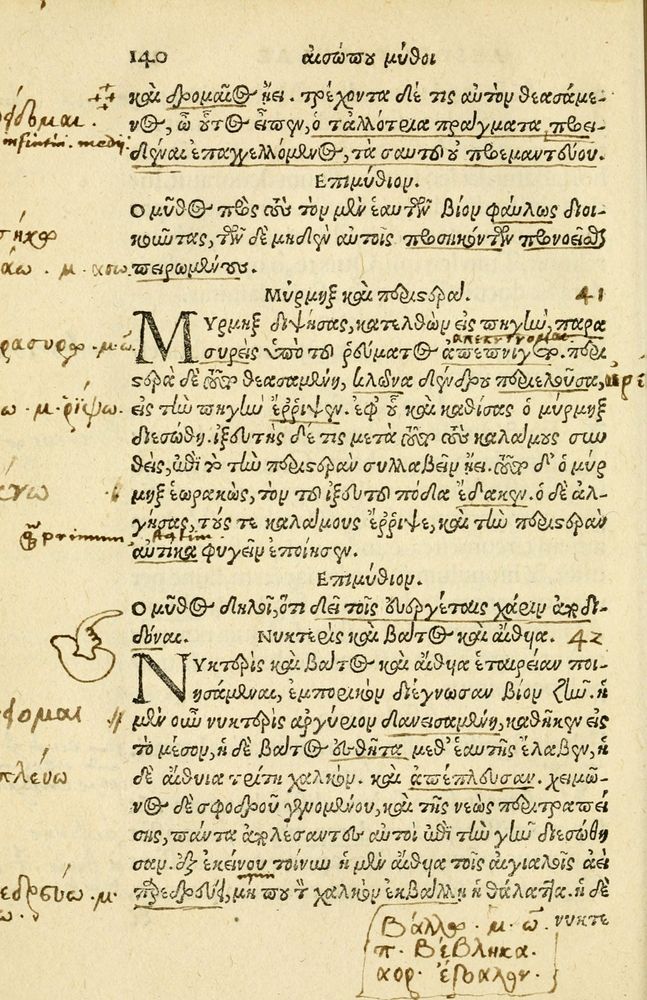 140 αἰσώπου μῦθοι
καὶ δρομαῖος ᾔει. τρέχοντα δέ τις αὐτὸν θεασάμε-
νος, ὦ οὗτος εἶπεν, ὁ τἀλλότρια πράγματα προει-
δέναι ἐπαγγελλόμενος, τὰ σαυτοῦ οὐ προεμαντεύου.
Ἐπιμύθιον.
Ο μῦθος πρὸς τοὺς τὸν μὲν ἑαυτῶν βίον φαύλως διοι-
κοῦντας, τῶν δὲ μηδὲν αὐτοῖς προσηκόντων προνοεῖσθαι
πειρωμένους.
Μύρμηξ καὶ περιστερά. 41
ΜΥρμηξ διψήσας, κατελθὼν εἰς πηγὴν, παρα
συρεὶς ὑπὸ τοῦ ῥεύματος ἀπεπνίγετο. περι
στερὰ δὲ τοῦτο θεασαμένη, κλῶνα δένδρου περιελοῦσα,
εἰς τὴν πηγὴν ἔρριψεν. ἐφ' οὗ καὶ καθίσας ὁ μύρμηξ
διεσώθη. ἰξευτὴς δέ τις μετὰ τοῦτο τοὺς καλάμους συν
θεὶς, ἐπὶ τὸ τὴν περιστερὰν συλλαβεῖν ᾔει. τοῦτο δ' ὁ μύρ
μηξ ἑωρακὼς, τὸν τοῦ ἰξευτοῦ πόδα ἔδακεν. ὁ δὲ ἀλ-
γήσας, τούς τε καλάμους ἔρριψε, καὶ τὴν περιστερὰν
αὐτίκα φυγεῖν ἐποίησεν.
Ἐπιμύθιον.
Ο μῦθος δηλοῖ, ὅτι δεῖ τοῖς εὐεργέταις χάριν ἀποδι-
δόναι. Νυκτερὶς καὶ βάτος καὶ αἴθυια. 42
ΝΥκτερὶς καὶ βάτος καὶ αἴθυια ἑταιρείαν ποι-
ησάμεναι, ἐμπορικὸν διέγνωσαν βίον ζῆν. ἡ
μὲν οὖν νυκτερὶς ἀργύριον δανεισαμένη, καθῆκεν εἰς
τὸ μέσον, ἡ δὲ βάτος ἐσθῆτα μεθ' ἑαυτῆς ἔλαβεν, ἡ
δὲ αἴθυια τρίτη χαλκόν. καὶ ἀπέπλευσαν. χειμῶ-
νος δὲ σφοδροῦ γενομένου, καὶ τῆς νεὼς περιτραπεί
σης, πάντα ἀπολέσαντες αὐτοὶ ἐπὶ τὴν γῆν διεσώθη
σαν. ἐξ ἐκείνου τοίνυν ἡ μὲν αἴθυια τοῖς αἰγιαλοῖς ἀεὶ
παρεδρεύει, μή που τὸν χαλκὸν ἐκβάλλῃ ἡ θάλαττα. ἡ δὲ
νυκτε
βάλλω . μ . ῶ.
π . βέβληκα.
αορ . έβαλον.